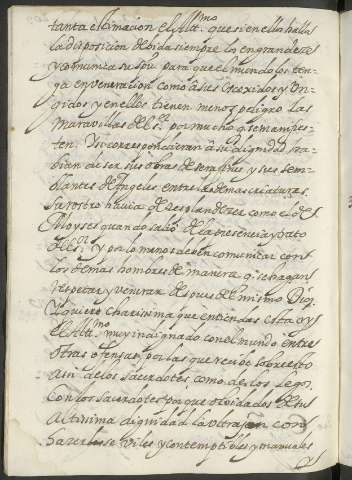 tanta estimacion el Alt.mo que si en ella halla
la disposicion debida siempre los engrandeze
y comunica su spu para que el mundo los ten-
ga en veneracion como a sus escoxidos y Un-
gidos y en ellos tienen menos peligro las
maravillas del Sr. por mucho q se manifies-
ten. Y si correspondieran a su dignidad ha-
bian de ser sus obras de serafines y sus sem-
blantes de Angeles entre las demas criaturas.
Su rostro havia de resplandezer como el de
Moyses quando salio de la presencia y trato
del Sr. y por lo menos deben comunicar con
los demas hombres de manera q se hagan
respetar y venerar despues del mismo Dios.
Quiero charissima que entiendas esta oy
el Alt.mo muy indignado con el mundo entre
otras ofensas, por las que recibe sobre esto
asi de los Sacerdotes, como de los legos.
Con los Sacerdotes porque olvidados de su
altissima dignidad la ultrajan con
hacerse viles y contemptibles y manuales